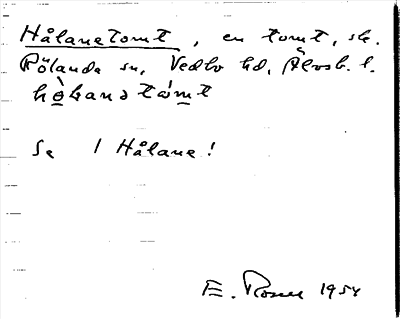 Hålanetomt, en tomt, sk.
Rölanda sn, Vedbo hd, Älvsb. l.
hò̱ḷana tå̱mt
Se 1 Hålane!
E. Rosell 1954